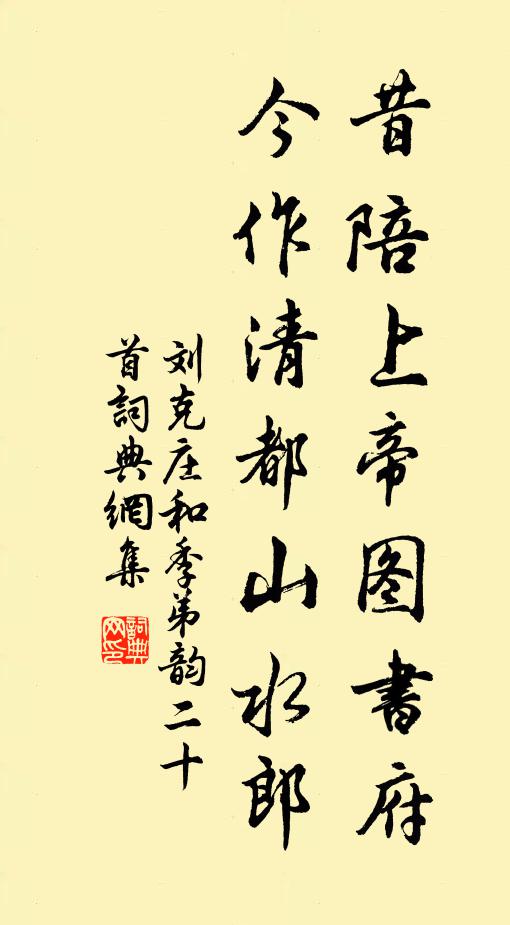 昔陪上帝图書府
今作清都山水郎
刘克庄和季弟韵二十
首詞典網集
詞典
网印